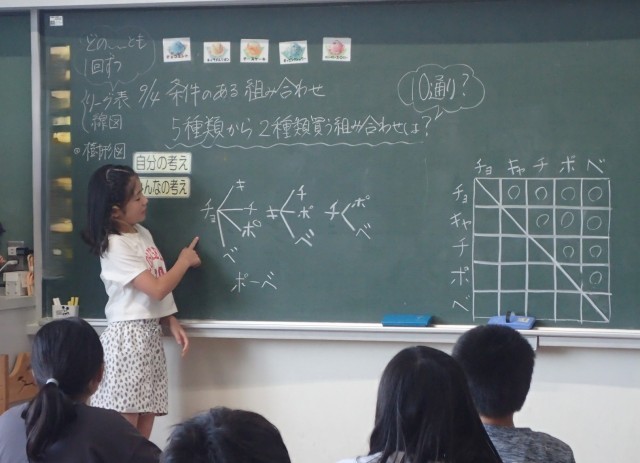 どの〜とも
1回ずつ
リーグ表
線図
樹形図
9/4 条件のある組み合わせ
10通り?
5種類から2種類買う組み合わせは?
自分の考え
みんなの考え
チョ キ チ ポ ベ
キ チ ポ ベ
チ ポ ベ
ポーベ
チョ キャ チ ポ ベ
チョ ○ ○ ○ ○
キャ ○ ○ ○
チ ○ ○
ポ ○
ベ